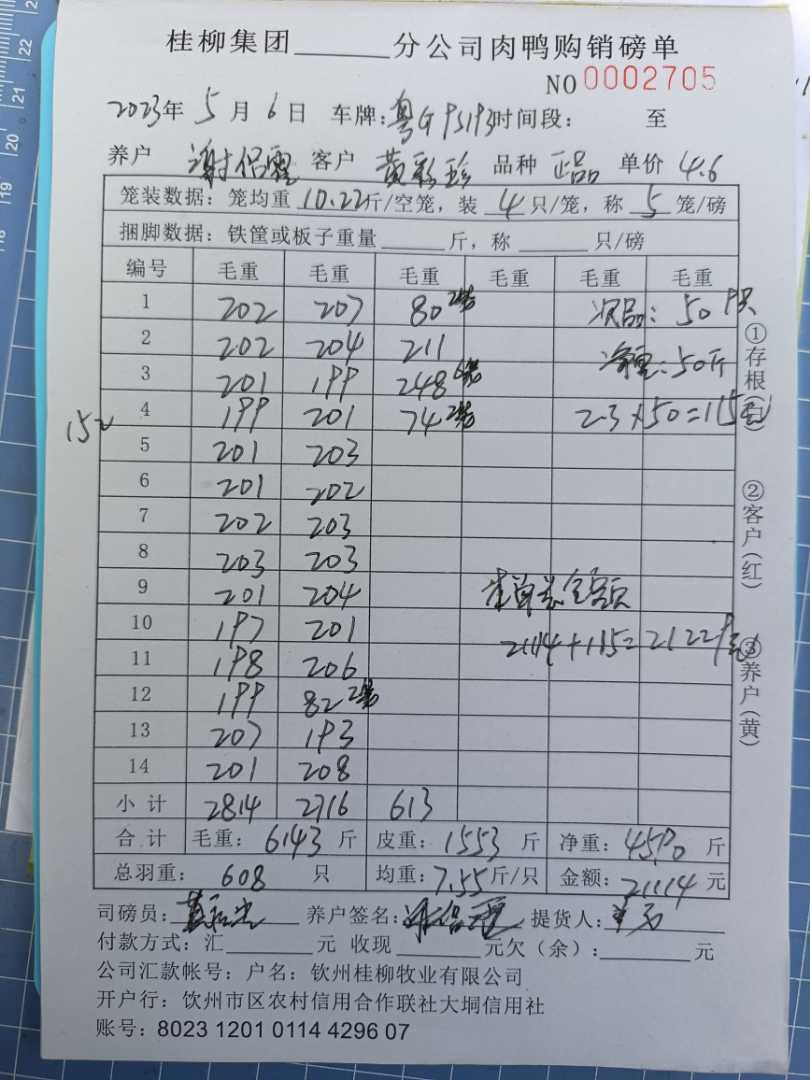 桂柳集团______分公司肉鸭购销磅单
NO 0002705
2023年 5月 6日 车牌: 粤G 时间段: 至
养户 谢保 客户 黄彩珍 品种 正品 单价 4.6
笼装数据: 笼均重 10.22斤/空笼, 装 4 只/笼, 称 5 笼/磅
捆脚数据: 铁筐或板子重量______斤, 称______只/磅
编号 毛重 毛重 毛重 毛重 毛重 毛重
1 202 207 80 2笼 次品: 50只
2 202 204 211 净重: 50斤
3 201 199 248 6笼
4 199 201 74 2笼 2.3×50=115元
152
5 201 203
6 201 202
7 202 203
8 203 203
9 201 204 单总金额
10 197 201 21114+115=21229元
11 198 206
12 199 82 2笼
13 207 193
14 201 208
小计 2814 2716 613
合计 毛重: 6143 斤 皮重: 1553 斤 净重: 4590 斤
总羽重: 608 只 均重: 7.55斤/只 金额: 21114 元
司磅员: 养户签名: 提货人:
付款方式: 汇______元 收现______元欠(余):______元
公司汇款帐号: 户名: 钦州桂柳牧业有限公司
开户行: 饮州市区农村信用合作联社大垌信用社
账号: 8023 1201 0114 4296 07
①存根(白) ②客户(红) ③养户(黄)